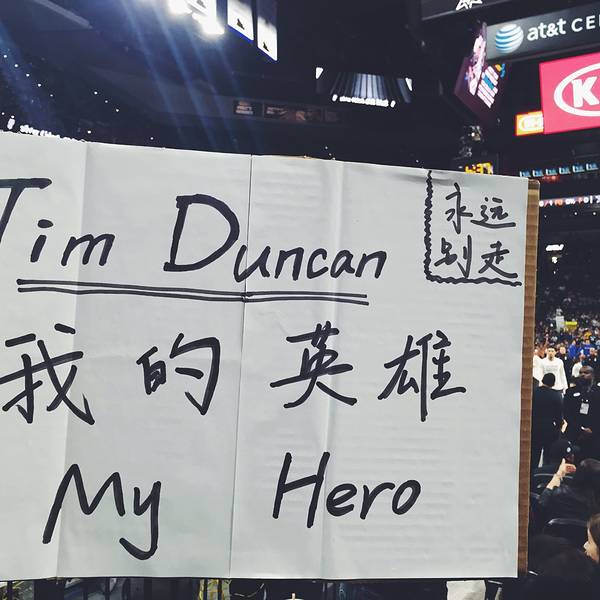 at&t CE
Tim Duncan
永远
别走
我的英雄
My Hero